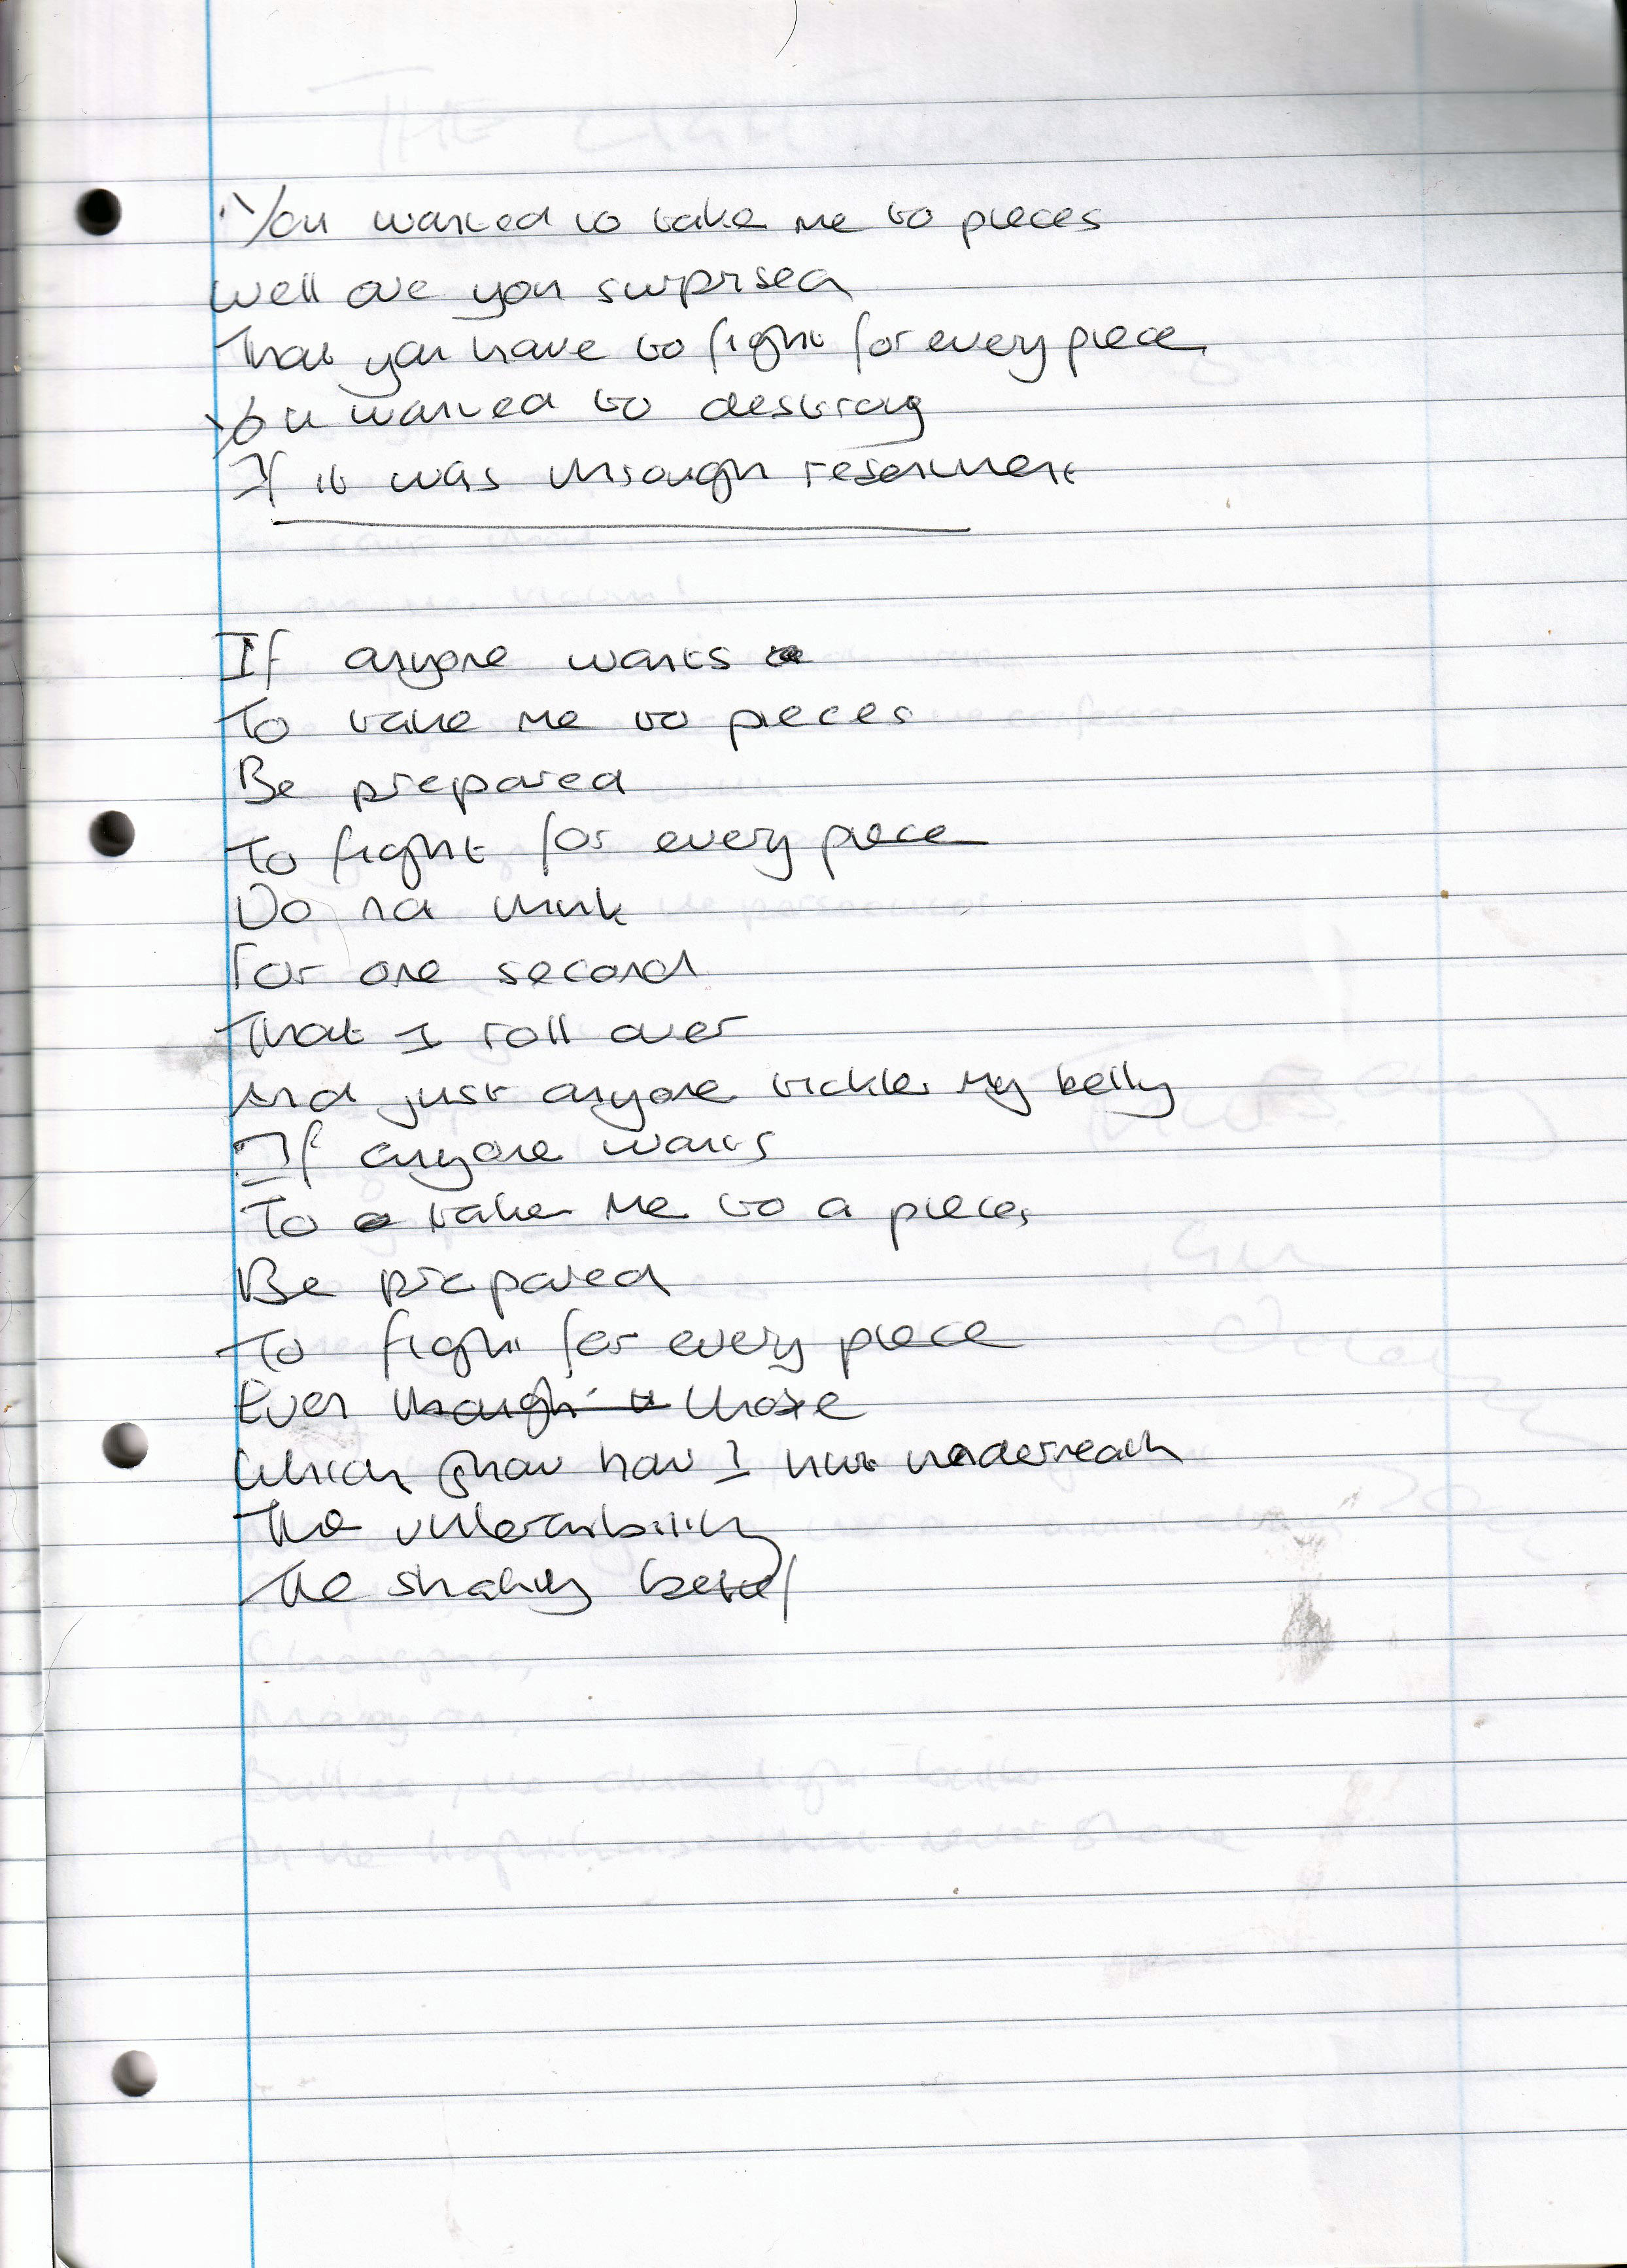 You wanted to take me to pieces
Well are you surprised
That you have to fight for every piece
You wanted to destroy
If it was through resentment
If anyone wants
To take me to pieces
Be prepared
To fight for every piece
Do not think
For one second
That I roll over
And just anyone tickles my belly
If anyone wants
To take me to a pieces
Be prepared
To fight for every piece
Even though those
Which show how I hurt underneath
The vulnerability
The shaky belief